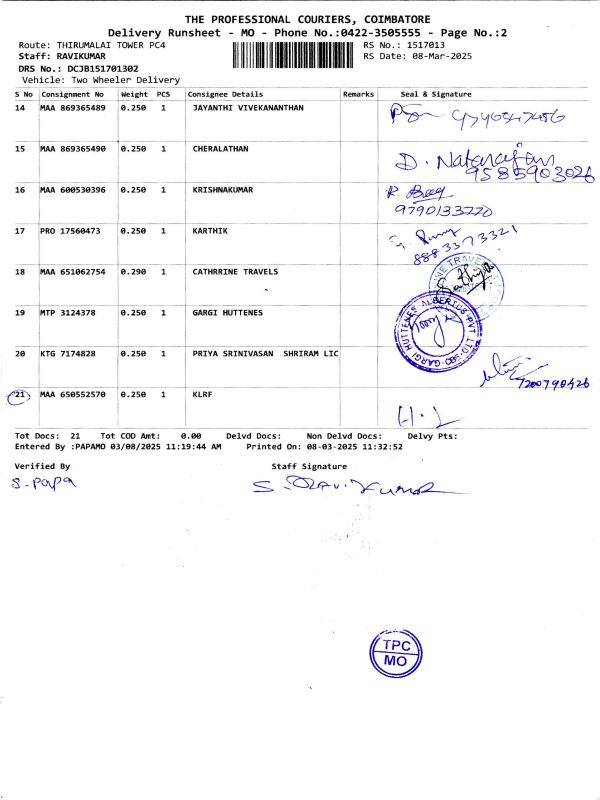 THE PROFESSIONAL COURIERS, COIMBATORE
Delivery Runsheet - MO - Phone No.:0422-3505555 - Page No.:2
Route: THIRUMALAI TOWER PC4 RS No.: 1517013
Staff: RAVIKUMAR RS Date: 08-Mar-2025
DRS No.: DCJB151701302
Vehicle: Two Wheeler Delivery
S No Consignment No Weight PCS Consignee Details Remarks Seal & Signature
14 MAA 869365489 0.250 1 JAYANTHI VIVEKANANTHAN
15 MAA 869365490 0.250 1 CHERALATHAN D. Natarajan
9585903026
16 MAA 600530396 0.250 1 KRISHNAKUMAR
9790133770
17 PRO 17560473 0.250 1 KARTHIK
8883373321
18 MAA 651062754 0.290 1 CATHRRINE TRAVELS
19 MTP 3124378 0.250 1 GARGI HUTTENES GARGI HUTTENES ALBERTUS PVT LTD
20 KTG 7174828 0.250 1 PRIYA SRINIVASAN SHRIRAM LIC
7200790426
21 MAA 650552570 0.250 1 KLRF
Tot Docs: 21 Tot COD Amt: 0.00 Delvd Docs: Non Delvd Docs: Delvy Pts:
Entered By :PAPAMO 03/08/2025 11:19:44 AM Printed On: 08-03-2025 11:32:52
Verified By Staff Signature
S. Papa S. Ravikumar
TPC
MO